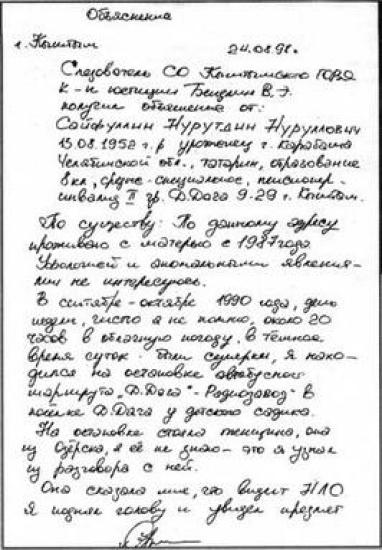 Объяснение
г. Кыштым 24.08.98г.
Следователь СО Кыштымского ГОВД
к-н юстиции Бендлин В. Э.
получил объяснение от:
Сайфуллин Нурутдин Нуруллович
15.08.1952 г.р уроженец г. Карабаша
Челябинской обл., татарин, образование
8 кл, средне-специальное, пенсионер-
инвалид II гр. Д.Дага 9-29 г. Кыштым.
По существу: По данному адресу
проживаю с матерью с 1987 года.
Уфологией и аномальными явления-
ми не интересуюсь.
В сентябре-октябре 1990 года, день
недели, число я не помню, около 20
часов в облачную погоду, в тёмное
время суток - были сумерки, я нахо-
дился на остановке автобусного
маршрута „Д.Дага" - Радиозавод" в
посёлке Д.Дага у детского садика.
На остановке стояла женщина, она
из Озёрска, я её не знаю - это я узнал
из разговора с ней.
Она сказала мне, что видит НЛО
Я поднял голову и увидел предмет